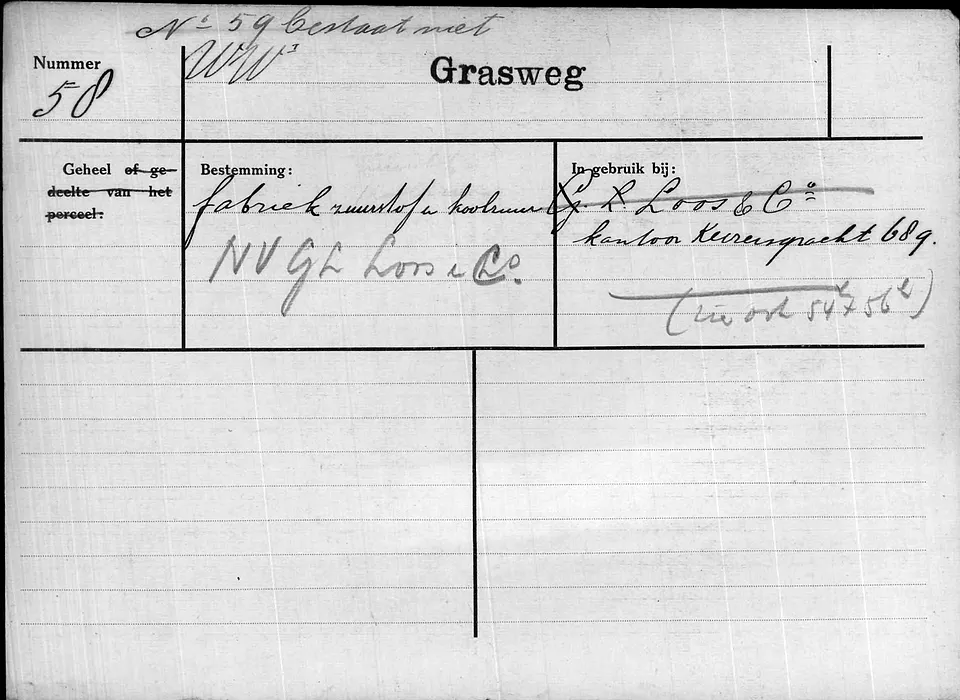 No 59 bestaat niet
Nummer
58
WW I
Grasweg
Geheel of ge-
deelte van het
perceel:
Bestemming:
fabriek zuurstof en koolzuur
NV G L Loos & Co.
In gebruik bij:
G. L. Loos & Co
kantoor Keizersgracht 689.
(zie ook 54 & 56)